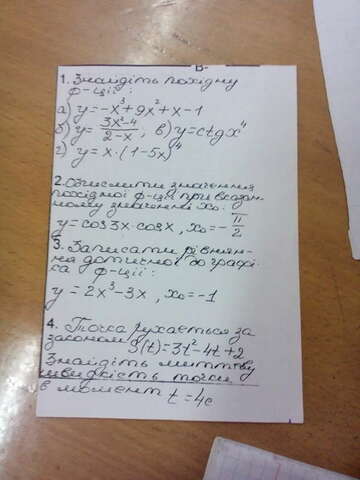 В-
1. Знайдіть похідну
ф-ції:
а) y = -x³ + 9x² + x - 1
б) y = (3x² - 4)/(2 - x); в) y = ctg x⁴
г) y = x · (1 - 5x)⁴
2. Обчислити значення
похідної ф-ції при вказан-
ному значенні x₀:
y = cos 3x · cos x, x₀ = -π/2
3. Записати рівнян-
ня дотичної до графі-
ка ф-ції:
y = 2x³ - 3x, x₀ = -1
4. Точка рухається за
законом S(t) = 3t² - 4t + 2
Знайдіть миттєву
швидкість точки
в момент t = 4c